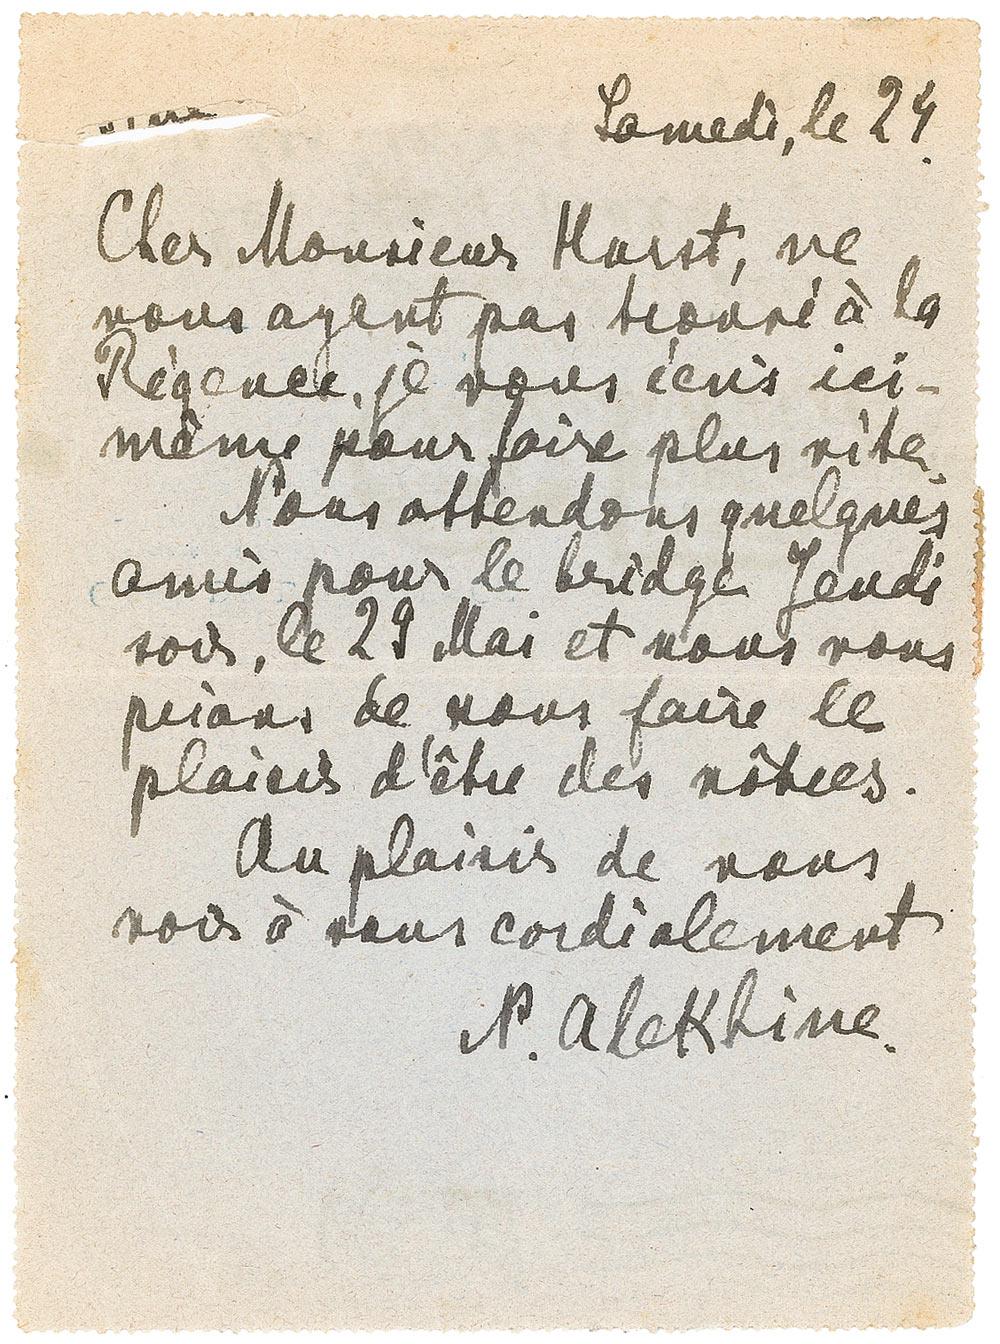 Samedi, le 24.
Cher Monsieur Hurst, ne
vous ayant pas trouvé à la
Régence, je vous écris ici-
même pour faire plus vite.
Nous attendons quelques
amis pour le bridge Jeudi
soir, le 29 Mai et nous vous
prions de nous faire le
plaisir d'être des nôtres.
Au plaisir de vous
voir à vous cordialement
N. Alekhine.